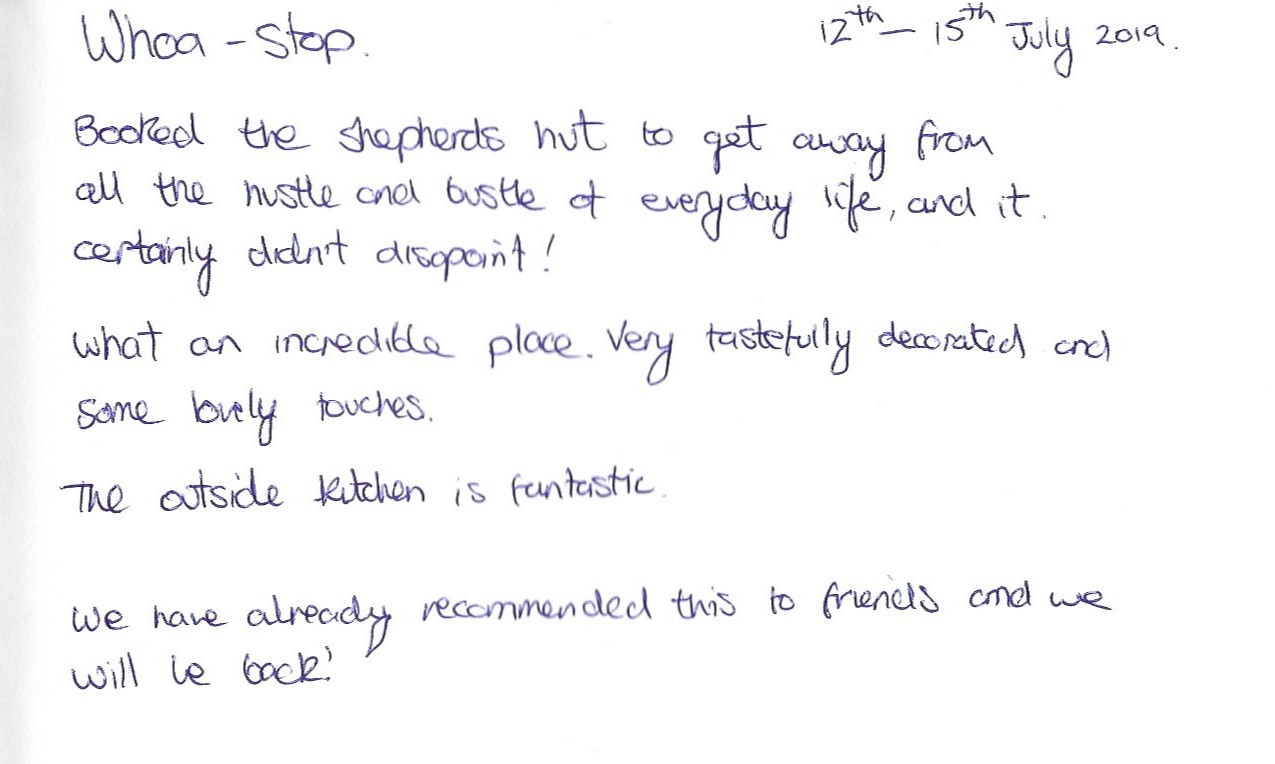 Whoa - Stop. 12th - 15th July 2019.
Booked the shepherds hut to get away from
all the hustle and bustle of everyday life, and it.
certainly didn't disapoint!
What an incredible place. Very tastefully decorated and
some lovely touches.
The outside kitchen is fantastic.
We have already recommended this to friends and we
will be back!